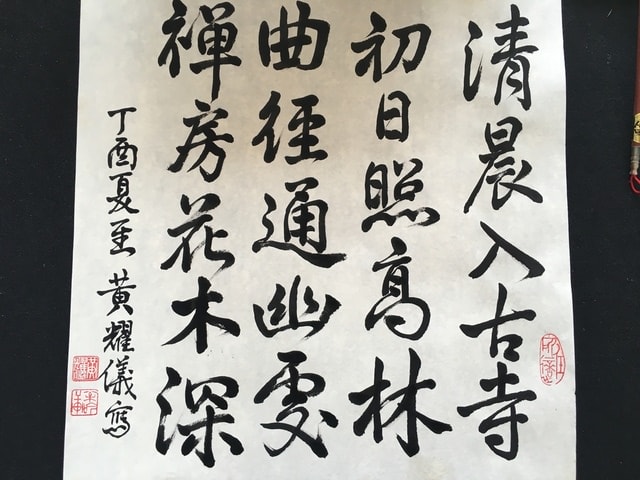 清晨入古寺
初日照高林
曲徑通幽䖏
禪房花木深
丁酉夏至 黄耀儀寫